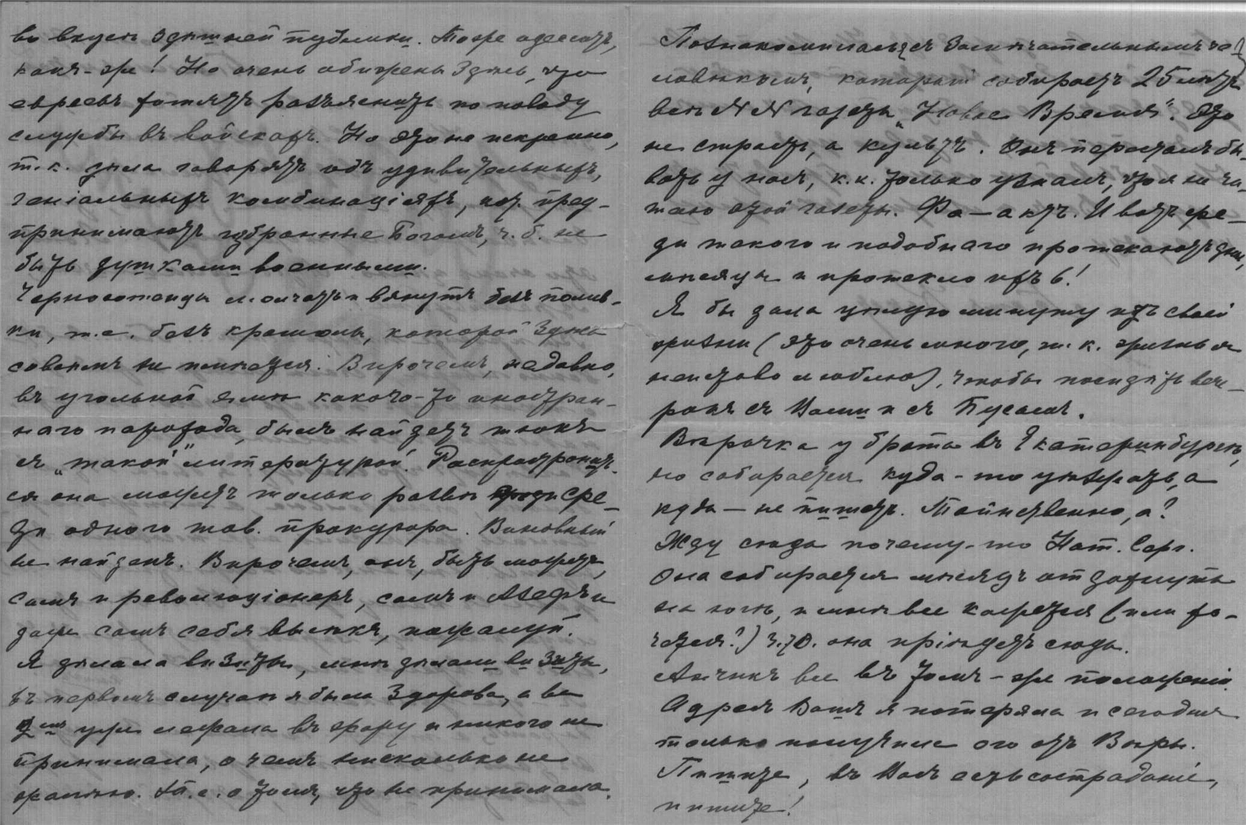 во вкусѣ здѣшней публики. Тоже одессит,
какъ-же! Но очень обижены здѣсь, что
евреевъ хотятъ разъяснить по поводу
службы въ войскахъ. Но это не искренно,
т.к. дѣла говорятъ объ удивительныхъ,
геніальныхъ комбинаціяхъ, кот. пред-
принимаютъ избранные Богомъ, ч. б. не
быть душками военными.
Черносотенцы молчатъ и вянутъ безъ полив-
ки, т.е. безъ крамолы, которой здѣсь
совсѣмъ не пахнетъ. Впрочемъ, недавно,
въ угольной ямѣ какого-то иностран-
наго парохода, былъ найденъ тюкъ
съ „такой" литературой. Распространит-
ся она можетъ только развѣ сре-
ди одного тов. прокурора. Виновный
не найденъ. Впрочемъ, онъ, быть можетъ,
самъ и революціонеръ, самъ и Азефъ и
даже самъ себя высѣкъ, пожалуй.
Я дѣлала визиты, мнѣ дѣлали визиты,
въ первомъ случаѣ я была здорова, а во
2мъ уже лежала въ жару и никого не
принимала, о чемъ нисколько не
жалѣю. Т.е. о томъ, что не принимала.
Познакомилась съ замѣчательнымъ че-
ловѣкомъ, который собираетъ 25 лѣтъ
всѣ NN газеты „Новое Время". Это
не страсть, а культъ. Онъ пересталъ бы-
вать у насъ, к.к. только узналъ, что я не чи-
таю этой газеты. Фа—актъ. И вотъ сре-
ди такого и подобнаго протекаютъ дни,
мѣсяцы и протекло ихъ 6!
Я бы дала цѣлую минуту изъ своей
жизни (это очень много, т.к. жизнь я
неистово люблю), чтобы посидѣть вече-
ромъ съ Вами и съ Бусамъ.
Вѣрочка у брата въ Екатеринбургѣ,
но собирается куда-то уѣзжать, а
куда — не пишетъ. Таинственно, а?
Жду сюда почему-то Нат. Серг.
Она собирается мѣсяцъ отдохнуть
на югѣ, и мнѣ все кажется (или хо-
чется?) ч.то. она пріѣдетъ сюда.
все въ томъ-же положеніи.
Адресъ Вашъ я потеряла и сегодня
только получила его отъ Вѣры.
Пишите, въ Васъ есть состраданіе,
пишите!